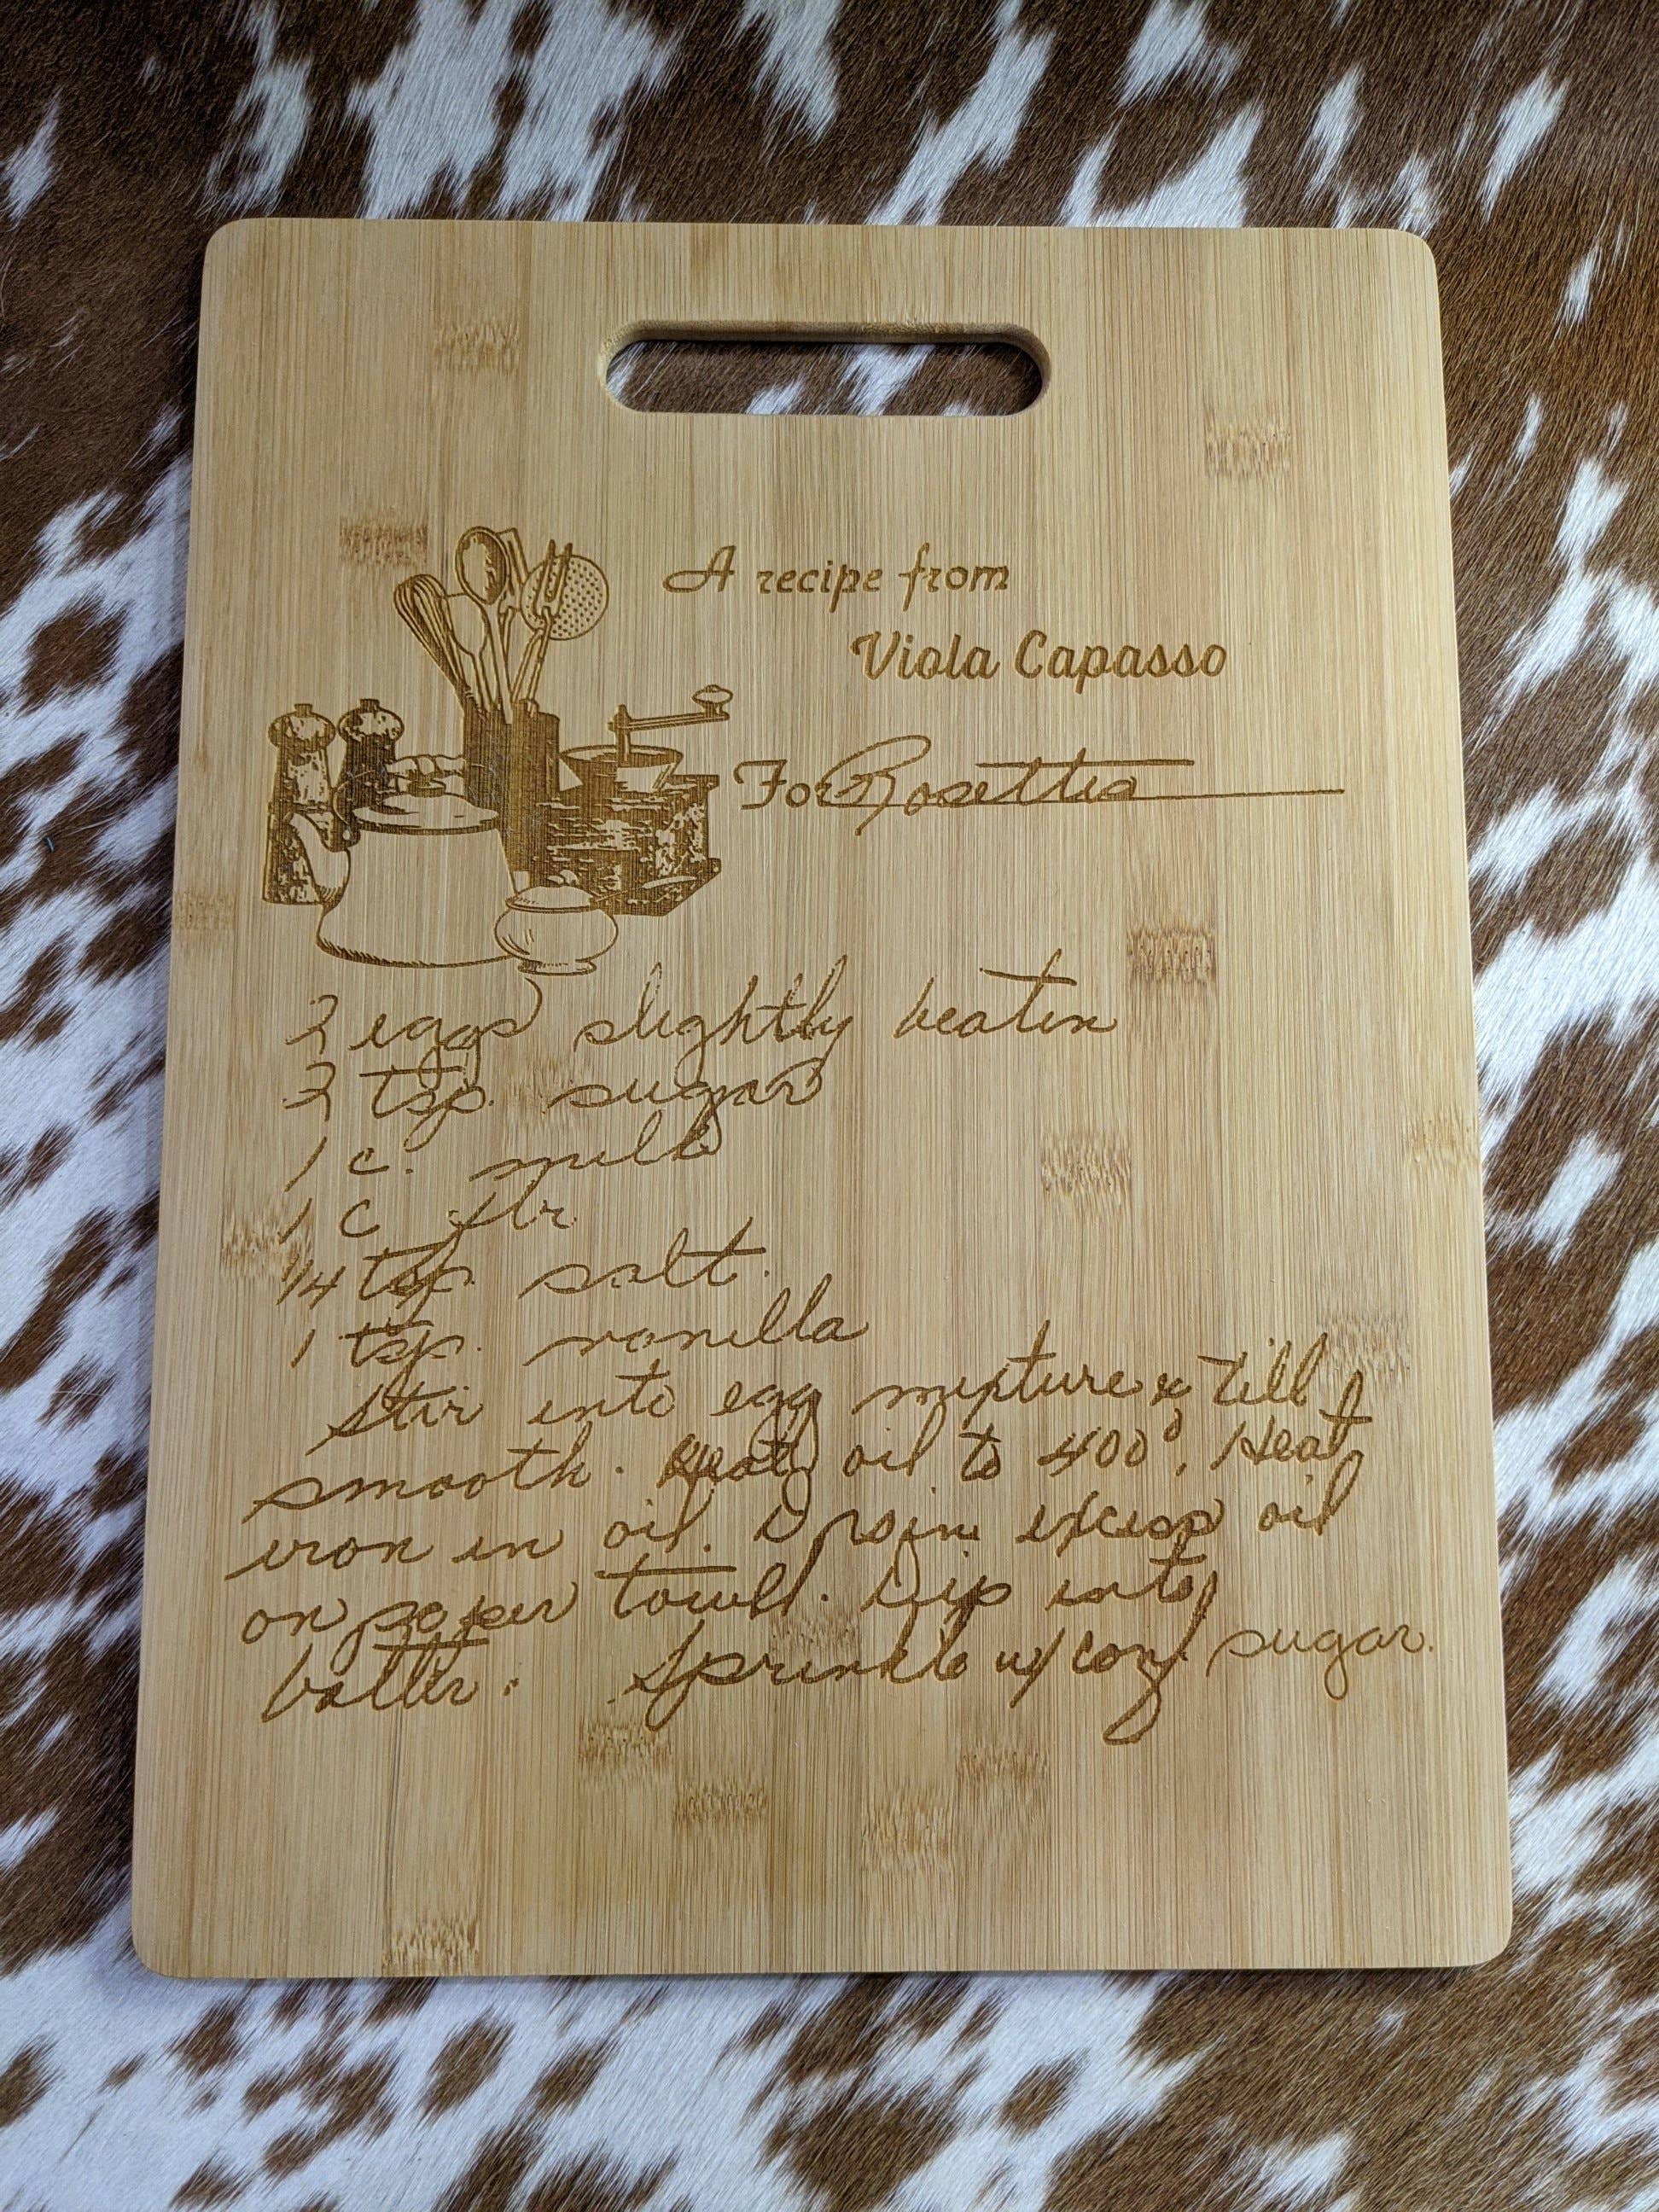 A recipe from
Viola Capasso
For Rosettes
2 eggs slightly beaten
2 tsp. sugar
1 c. milk
1 c flr.
1/4 tsp. salt.
1 tsp. vanilla
Stir into egg mixture & till
smooth. Heat oil to 400°. Heat
iron in oil. Drain excess oil
on paper towell. Dip into
batter. Sprinkle w/ conf sugar.